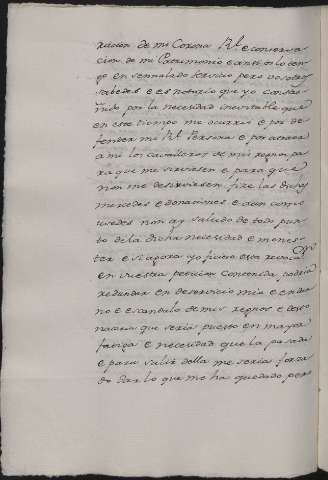 racion de mi Corona Rl e conserva
cion de mi Patrimonio e antes lo ten
go en señalado servicio pero vosotros
sabedes e es notorio que yo constre
ñido por la necesidad inevitable que
en este tiempo me ocurrió e por de
fender mi Rl Persona e por atraer
a mi los cavalleros de mis regnos pa
ra que me sirviesen e para que
non me desirviesen fize las dichas
mercedes e donaciones e aun como
vuedes non ay salido de todo pun
to de la dicha necesidad e menes
ter e si agora yo ficiese esta revoca
cion
en vuestra peticion contenida podria
redundar en deservicio mio e en da
no e escandalo de mis regnos e de so
nacion que seria puesto en mayor
fatiga e necesidad que la pasada
e para salir della me seria forza
do dar lo que me ha quedado pero